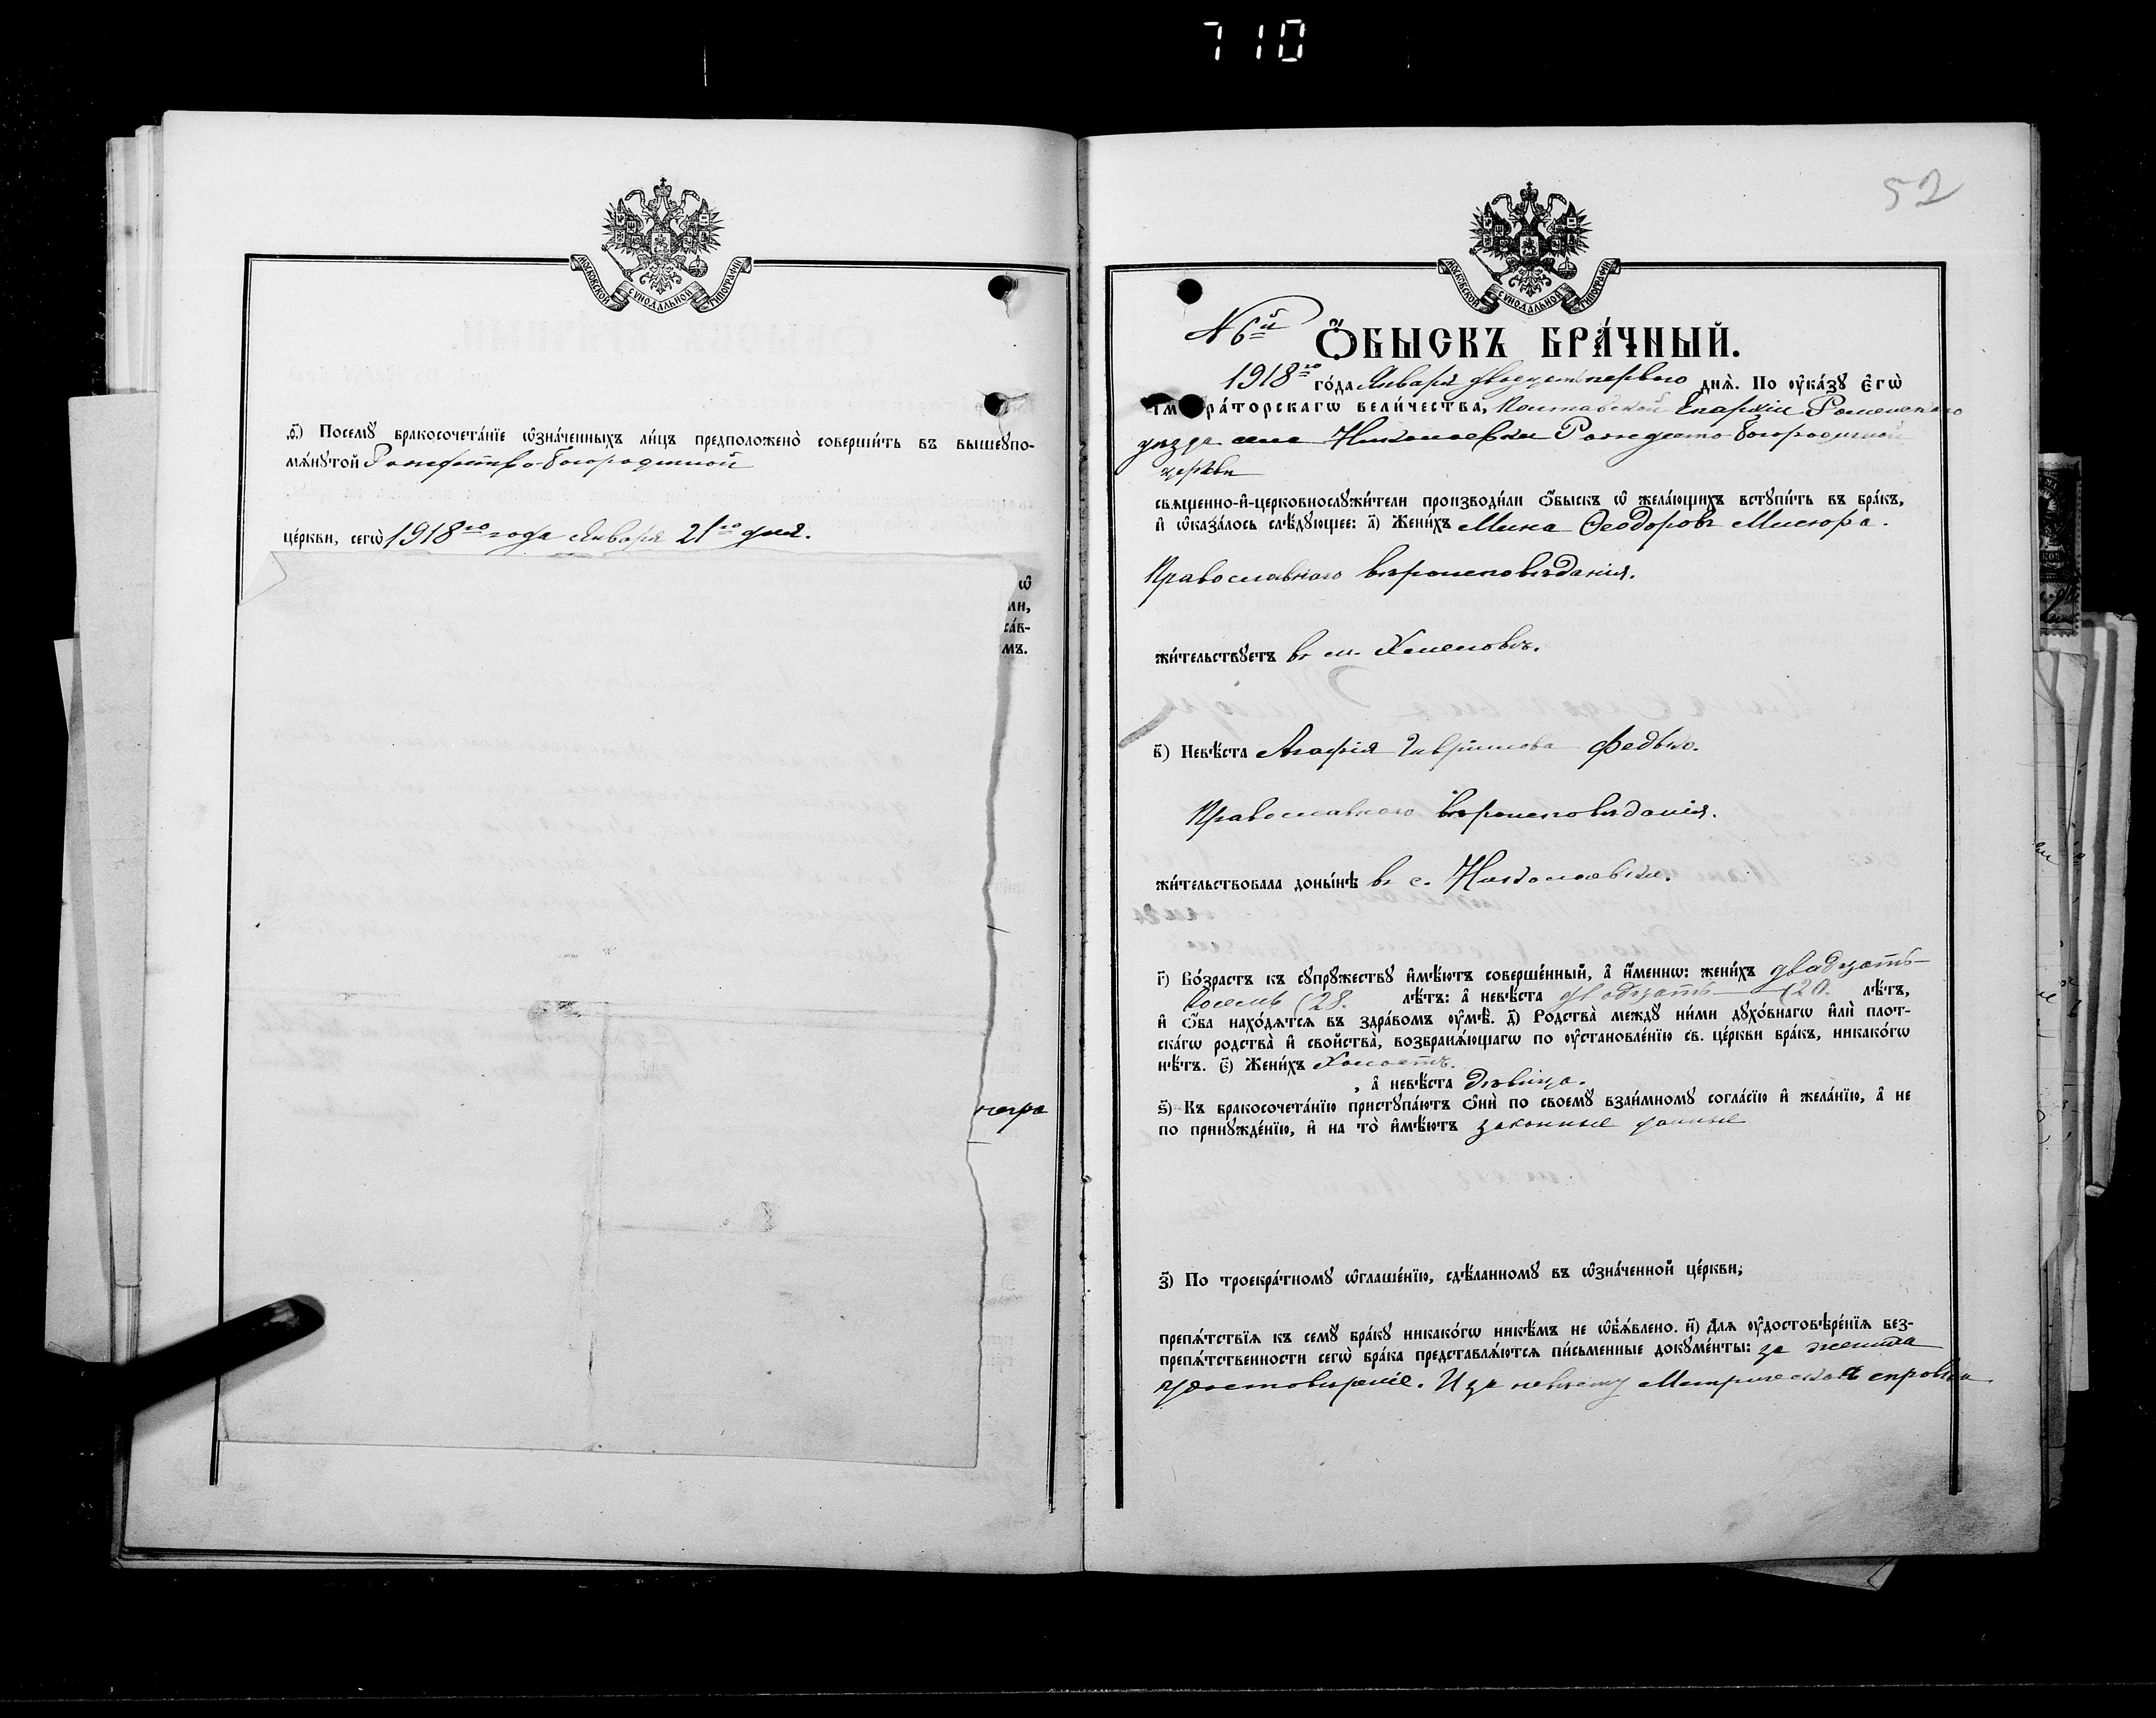 710
МОСКОВСКОЙ СУНОДАЛЬНОЙ ТИПОГРАФІИ
ѳ҃) Посемꙋ бракосочета́нїе ѡ҆зна́ченныхъ ли́цъ предположено̀ соверши́ть въ вышеꙋпо-
мѧ́нꙋтой Рождество-Богородичной
це́ркви, сегѡ̀ 1918го года Января 21го дня.
ѡ҆
ли,
са́в-
мъ.
52
МОСКОВСКОЙ СУНОДАЛЬНОЙ ТИПОГРАФІИ
N 6й Ѻ҆БЫСКЪ БРА́ЧНЫЙ.
1918го го́да Января двадцать первого днѧ̀. По ᲂу҆ка́зꙋ Є҆гѡ̀
ра́торскагѡ вели́чества, Полтавской Епархіи Роменского
уезда села Николаевки Рождество-Богородичной
церкви
сващенно-и҆-церковнослꙋжи́тели производи́ли ѻ҆́быскъ ѡ҆ жела́ющихъ встꙋпи́ть въ бра́къ,
и҆ ѡ҆каза́лось слѣ́дꙋющее: а҃) Жени́хъ Мина Ѳеодоровъ Мисюра.
Православного вѣроисповѣданія.
жи́тельствꙋетъ въ м. Хмеловѣ.
в҃) Невѣ́ста Агафія Гаврилова Федько.
Православного вѣроисповѣданія.
жи́тельствовала доны́нѣ въ с. Николаевки.
г҃) Во́зрастъ къ сꙋпрꙋ́жествꙋ и҆мѣ́ютъ соверше́нный, а҆ и҆́меннѡ: жени́хъ двадцать-
восемь (28. лѣ́тъ: а҆ невѣ́ста двадцать (20. лѣ́тъ,
и҆ ѻ҆́ба нахо́дѧтсѧ въ здра́вомъ ᲂу҆мѣ̀. д҃) Родства̀ междꙋ ни́ми дꙋхо́внагѡ и҆лѝ плот-
ска́гѡ родства̀ и҆ сво́йства, возбранѧ́ющагѡ по ᲂу҆становле́нїю св. це́ркви бра́къ, никако́гѡ
нѣ́тъ. є҃) Жени́хъ Холостъ.
, а҆ невѣ́ста дѣвица.
ѕ҃) Къ бракосочета́нїю пристꙋпа́ютъ ѻ҆нѝ по своемꙋ взаи́мномꙋ согла́сїю и҆ жела́нїю, а҆ не
по принꙋжде́нїю, и҆ на то̀ и҆мѣ́ютъ законные данные
з҃) По троекра́тномꙋ ѡ҆глаше́нїю, сдѣ́ланномꙋ въ ѡ҆зна́ченной це́ркви;
препѧ́тствїѧ къ семꙋ бра́кꙋ никако́гѡ никѣ́мъ не ѡ҆б̾ѧ́влено. и҃) Для ᲂу҆достовѣре́нїѧ без-
препѧ́тственности сегѡ̀ бра́ка представлѧ́ютсѧ пи́сьменные докꙋме́нты: за жениха
удостовѣреніе. И за невѣсту Метрическая справка.